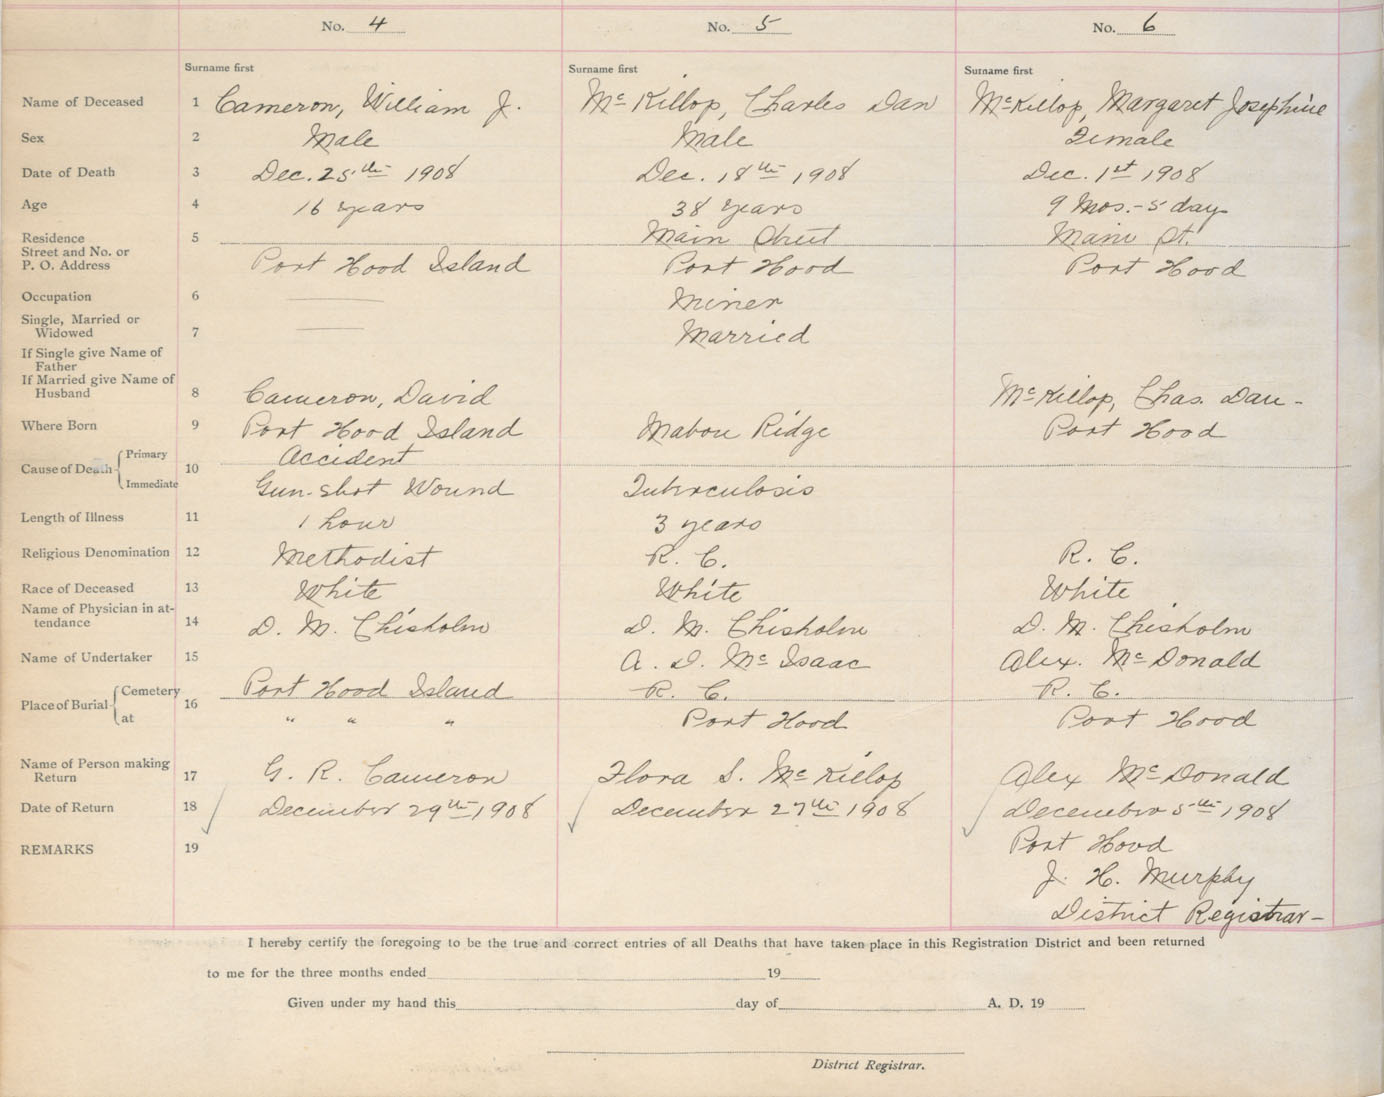 No. 4 No. 5 No. 6
Surname first Surname first Surname first
Name of Deceased 1 Cameron, William J. McKillop, Charles Dan McKillop, Margaret Josephine
Sex 2 Male Male Female
Date of Death 3 Dec. 25th 1908 Dec. 18th 1908 Dec. 1st 1908
Age 4 16 years 38 years 9 Mos. - 5 days
Residence 5 Main Street Main St.
Street and No. or
P. O. Address Port Hood Island Port Hood Port Hood
Occupation 6 —— Miner
Single, Married or
Widowed 7 —— Married
If Single give Name of
Father
If Married give Name of
Husband 8 Cameron, David McKillop, Chas. Dan -
Where Born 9 Port Hood Island Mabou Ridge Port Hood
Cause of Death Primary 10 Accident
Immediate Gun-shot Wound Tuberculosis
Length of Illness 11 1 hour 3 years
Religious Denomination 12 Methodist R. C. R. C.
Race of Deceased 13 White White White
Name of Physician in at-
tendance 14 D. M. Chisholm D. M. Chisholm D. M. Chisholm
Name of Undertaker 15 A. D. McIsaac Alex. McDonald
Place of Burial Cemetery 16 Port Hood Island R. C. R. C.
at " " " Port Hood Port Hood
Name of Person making
Return 17 G. R. Cameron Flora S. McKillop Alex McDonald
Date of Return 18 December 29th 1908 December 27th 1908 December 5th 1908
REMARKS 19 Port Hood
J. H. Murphy
District Registrar -
I hereby certify the foregoing to be the true and correct entries of all Deaths that have taken place in this Registration District and been returned
to me for the three months ended 19
Given under my hand this day of A. D. 19
District Registrar.